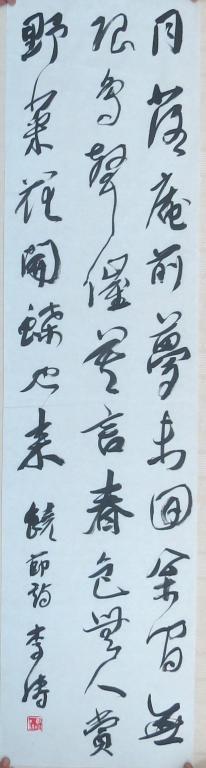 月落庵前夢未回松間無
限鸟聲催莫言春色無人賞
野菜花開蝶也来 饒節詩 李